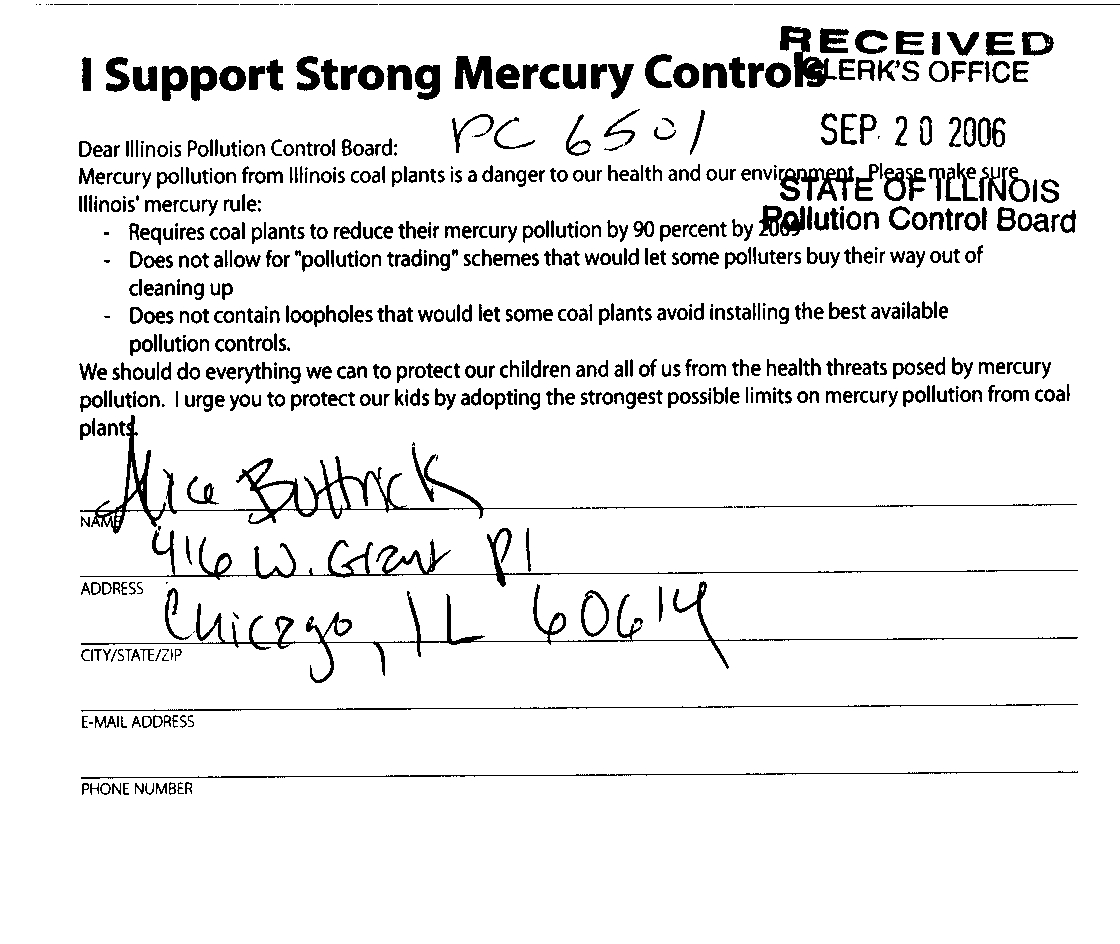 RECEIVED
CLERK'S OFFICE
I Support Strong Mercury Controls
SEP 20 2006
PC 6501
Dear Illinois Pollution Control Board:
Mercury pollution from Illinois coal plants is a danger to our health and our environment. Please make sure
STATE OF ILLINOIS
Illinois' mercury rule:
Pollution Control Board
- Requires coal plants to reduce their mercury pollution by 90 percent by 2009
- Does not allow for "pollution trading" schemes that would let some polluters buy their way out of
cleaning up
- Does not contain loopholes that would let some coal plants avoid installing the best available
pollution controls.
We should do everything we can to protect our children and all of us from the health threats posed by mercury
pollution. I urge you to protect our kids by adopting the strongest possible limits on mercury pollution from coal
plants.
Alice Buttrick
NAME
416 W. Grant Pl
ADDRESS
Chicago, IL 60614
CITY/STATE/ZIP
E-MAIL ADDRESS
PHONE NUMBER